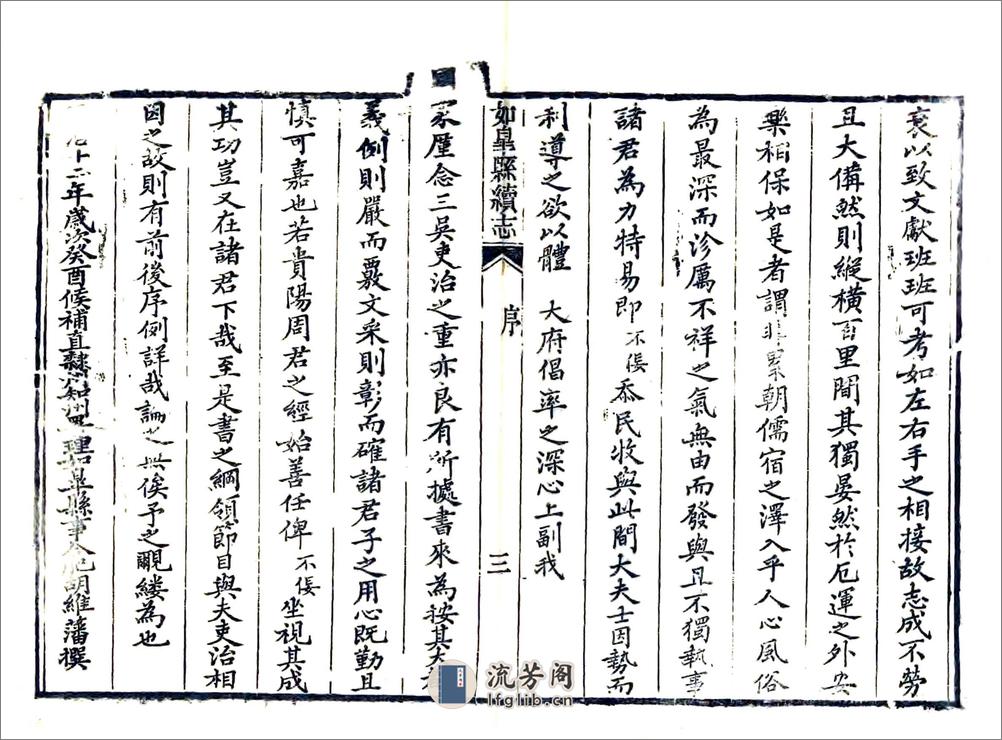 衰以致文獻班班可考如左右手之相接故志成不勞
且大備然則縱橫百里間其獨晏然於厄運之外安
樂相保如是者謂非累朝儒宿之澤入乎人心風俗
為最深而沴厲不祥之氣無由而發與且不獨執事
諸君為力特易即不佞忝民牧與此間大夫士因勢而
利導之欲以體 大府倡率之深心上副我
如皋縣續志 序 三
國
家廑念三吳吏治之重亦良有所據書來為按其大
義例則嚴而覈文采則彰而確諸君子之用心既勤且
慎可嘉也若貴陽周君之經始善任俾不佞坐視其成
其功豈又在諸君下哉至是書之綱領節目與夫吏治相
因之故則有前後序例詳哉論之無俟予之覼縷為也
十二年歲次癸酉候補直隸州知州署理如皋縣事合肥胡維藩撰
流芳阁
lfglib.cn